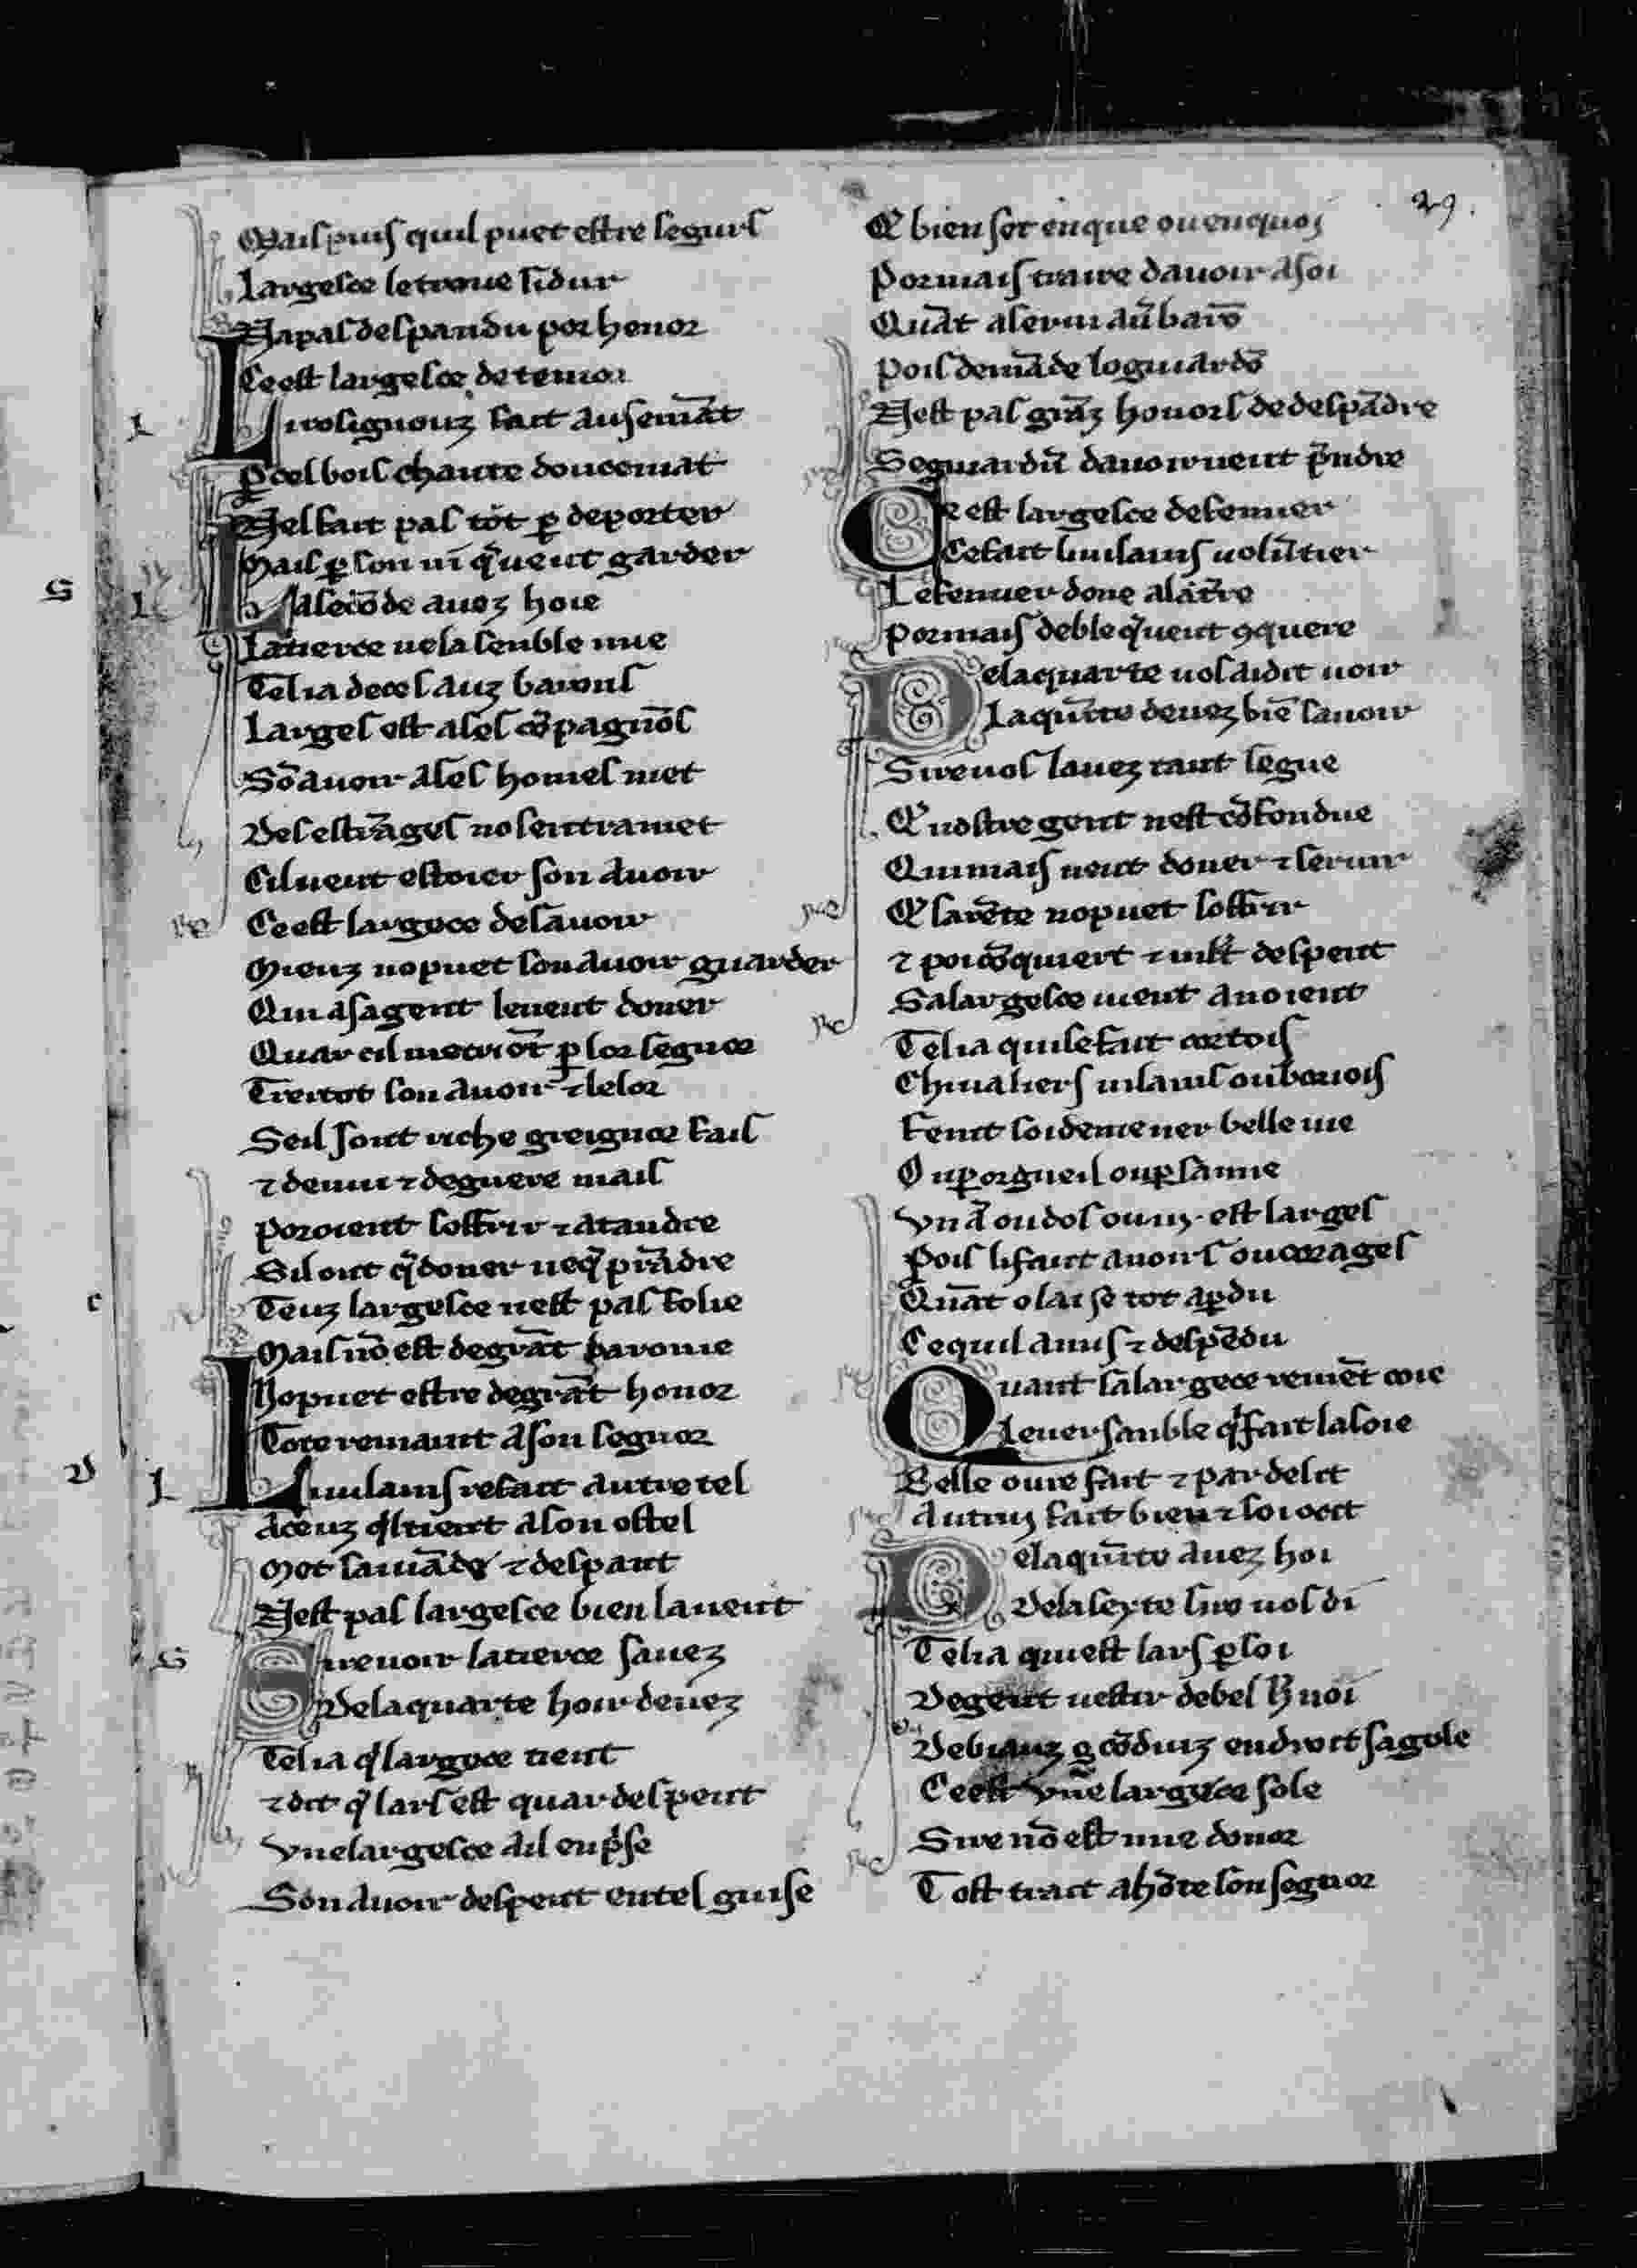 29.
Mais puis quil puet estre segurs
Largesce le troue si dur
Na pas despandu por henor
Ce est largesce de temor
Li rosignouz fait ausemāt
P cel bois chante doucemāt
Nel fait pas tot ꝑ deporter
Mais ꝑ son ni q̄ ueut garder
La secōde auez hoie
La tierce ne la senble mie
Tel i a de ces auz barons
Larges est a ses cōpagnōs
Sō auoir a ses homes met
Des estrāges no sentramet
Cil ueut estoier son auoir
Ce est largece de sauoir
Mieuz no puet son auoir guarder
Qui a sa gent le ueut doner
Quar cil metrōt ꝑ lor segnor
Trestot son auoir ⁊ le lor
Se il sont riche greignor fais
⁊ denui ⁊ de guere mais
Poroient soffrir ⁊ atandre
Sil ont q̄ doner ne q̄ prādre
Teuz largesce nest pas folie
Mais nō est de grāt baronie
No puet estre de grāt honor
Tote remaint a son segnor
Li uilains refait autretel
A ceuz q̄l tient a son ostel
Met sa uiāde ⁊ despant
Nest pas largesce bien lauent
Sire uoir la tierce sauez
De la quarte hoir deuez
Tel i a q̄ largece tient
⁊ dit q̄ lars est quar despent
Vne largesce a il enp̄se
Son auoir despent en tel guise
Q̄ bien set en que ou en quoi
Por mais traire dauoir a soi
Quāt a serui aū barō
Pois demāde lo guiardō
Nest pas grāz honors de despādre
Se guiardū dauoir ueut p̄ndre
Ce est largesce de fennier
Ce fait li uilains uolūtier
Le fennier done a la tr̄re
Por mais de ble q̄ ueut ꝯquere
De la quarte uos ai dit uoir
La quīte deuez biē sauoir
Sire uos lauez tant segue
Q̄ uostre gent nest cōfondue
Qui mais ueut doner ⁊ seruir
Q̄ sa rēte no puet soffrir
⁊ poi cōquiert ⁊ uist despent
Sa largesce uient a noient
Tel i a qui se fait cortois
Chiualiers uilains ou borzois
Ou ꝑ orguoil ou ꝑ sa mie
Vn ā ou dos ou uiz est larges
Pois li faut auoirs ou corages
Quāt o la ise tot apdu
Ce quil a mis ⁊ despēdu
Quant sa largece reuiēt coie
Le uer sanble q̄ fait la soie
Belle oure fait ⁊ par delit
Autrui fait bien ⁊ soi ocit
De la quīte auez hoi
De la seyte sire uos di
Tel i a qui est lars ꝑ soi
De gent uestir de bel
Ce est vne largece sole
Sire nō est mie donor
Tost trait a hōte son segnor